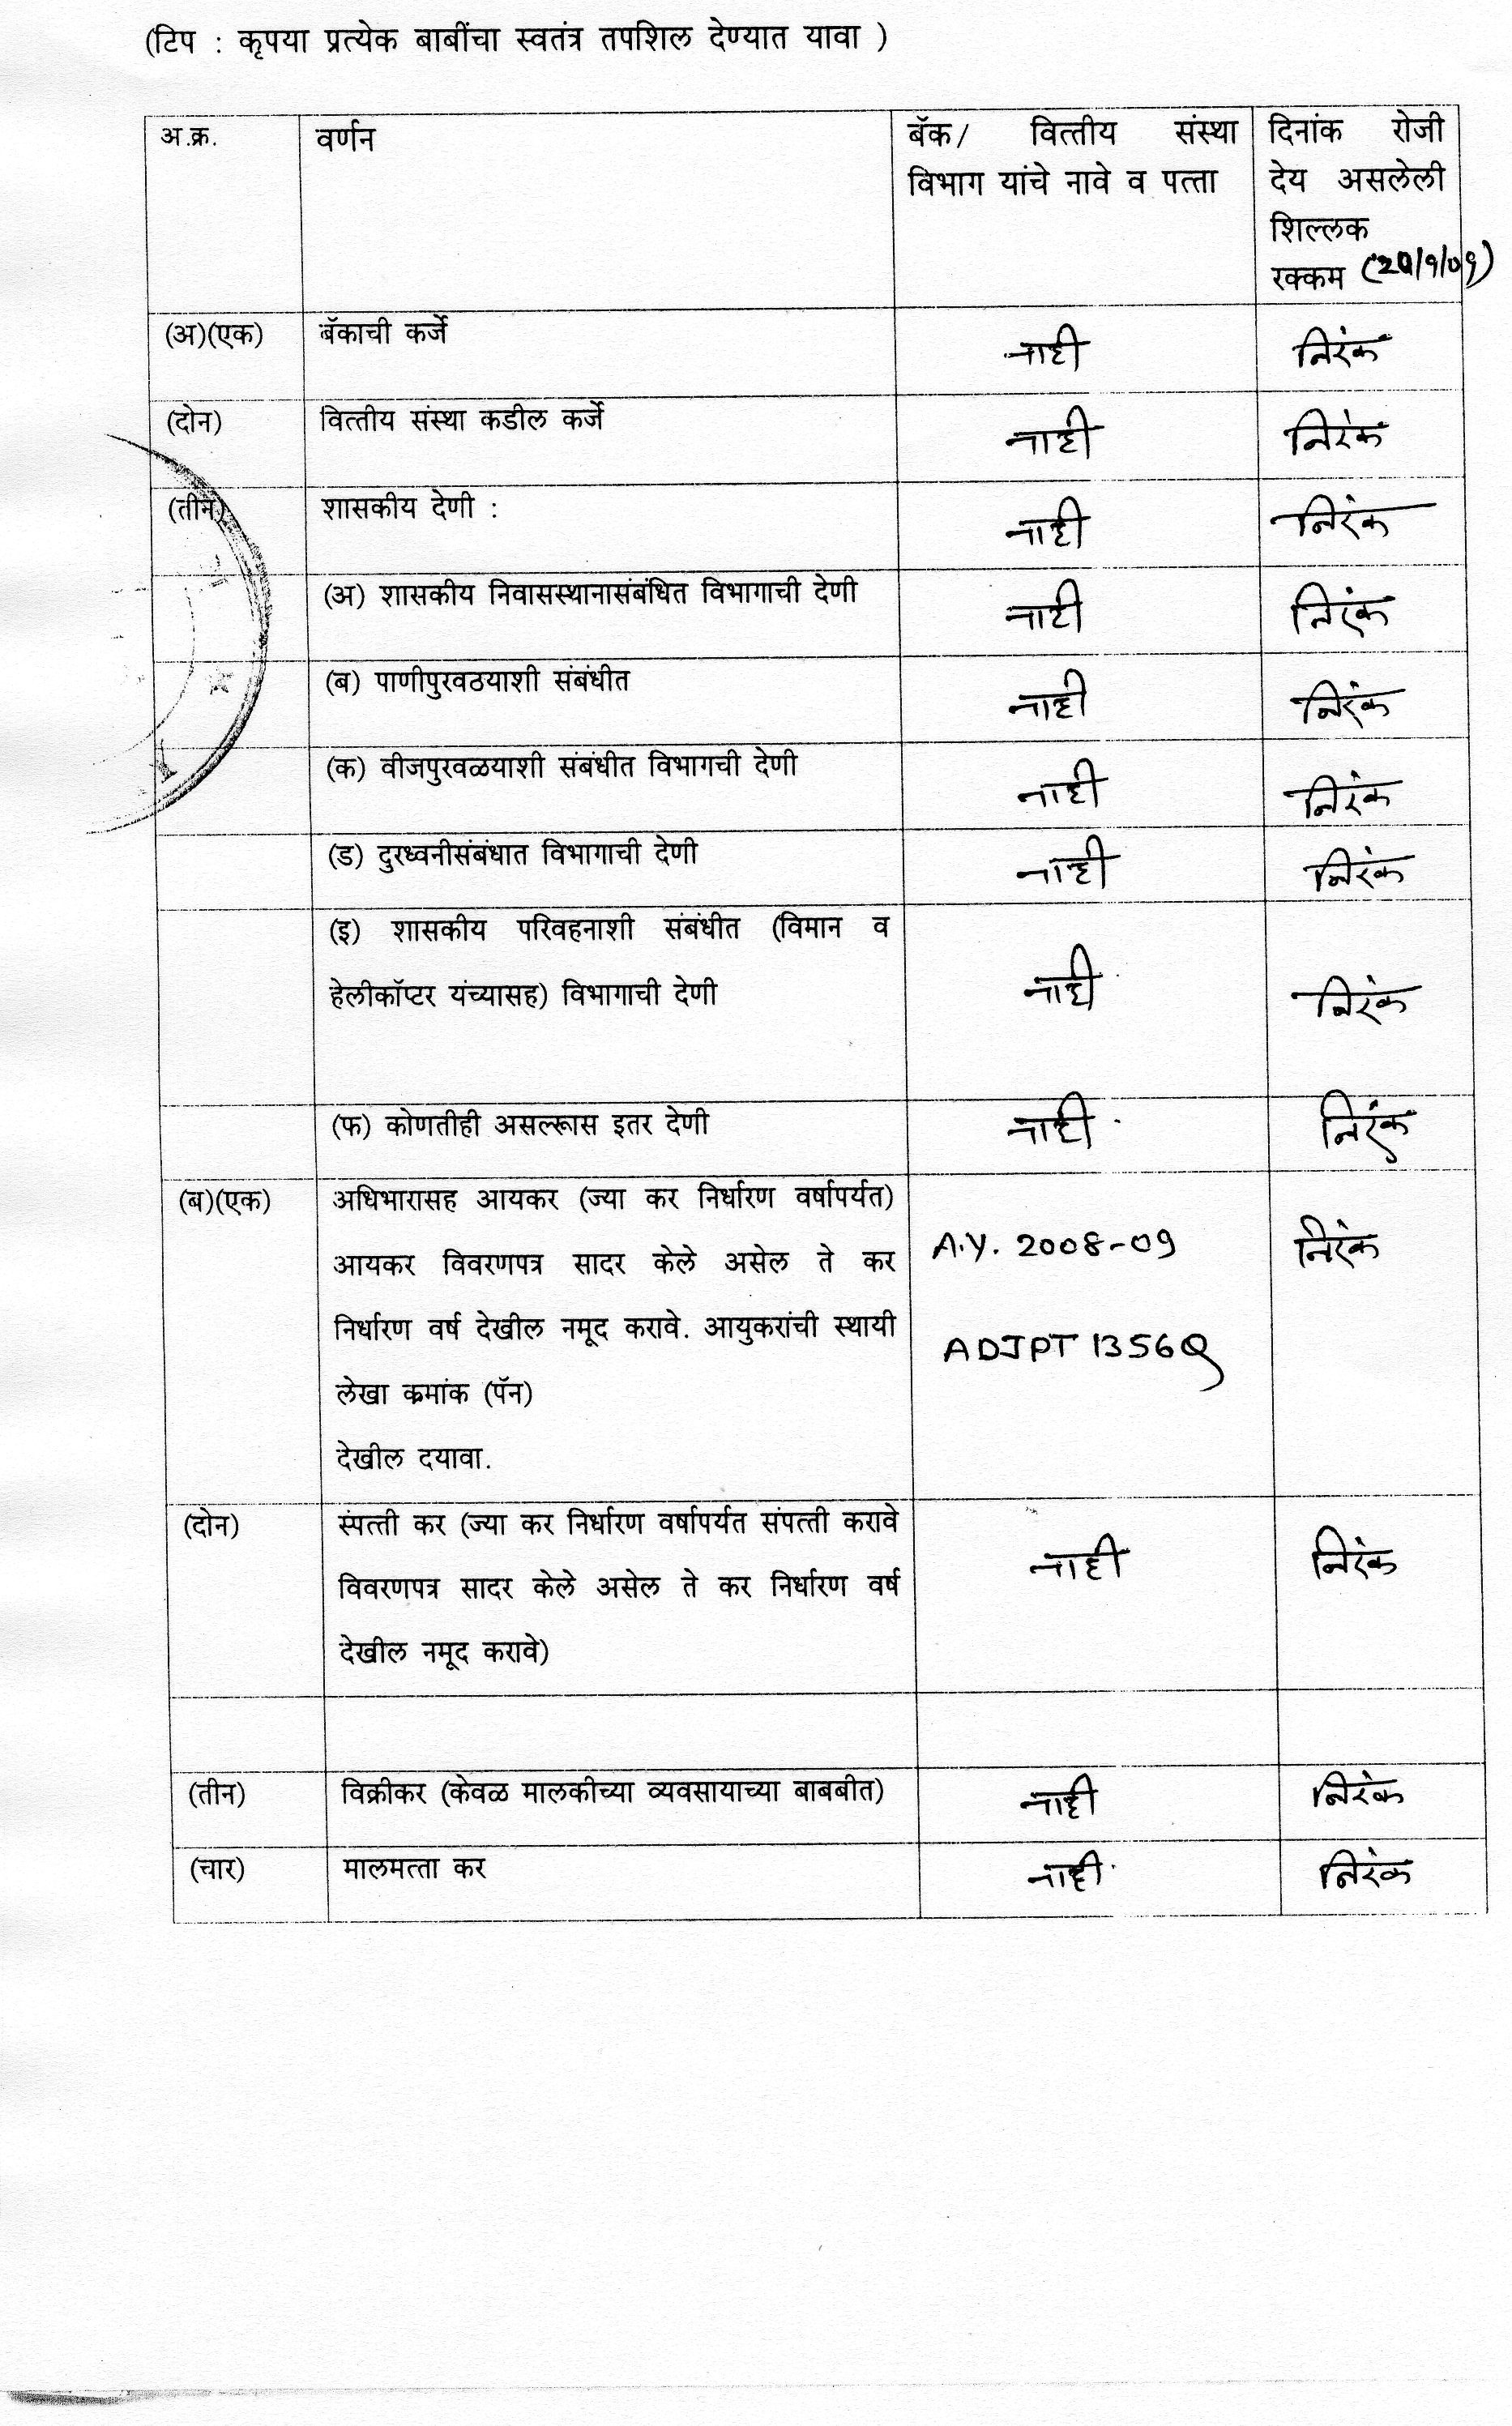 (टिप : कृपया प्रत्येक बाबींचा स्वतंत्र तपशिल देण्यात यावा )
अ.क्र. वर्णन बॅक/ वित्तीय संस्था विभाग यांचे नावे व पत्ता दिनांक रोजी देय असलेली शिल्लक रक्कम
(अ)(एक) बॅकाची कर्जे नाही निरंक
(दोन) वित्तीय संस्था कडील कर्जे नाही निरंक
(तीन) शासकीय देणी : नाही निरंक
(अ) शासकीय निवासस्थानासंबंधित विभागाची देणी नाही निरंक
(ब) पाणीपुरवठयाशी संबंधीत नाही निरंक
(क) वीजपुरवळयाशी संबंधीत विभागची देणी नाही निरंक
(ड) दुरध्वनीसंबंधात विभागाची देणी नाही निरंक
(इ) शासकीय परिवहनाशी संबंधीत (विमान व
हेलीकॉप्टर यंच्यासह) विभागाची देणी नाही निरंक
(फ) कोणतीही असल्रूास इतर देणी नाही निरंक
(ब)(एक) अधिभारासह आयकर (ज्या कर निर्धारण वर्षापर्यत)
आयकर विवरणपत्र सादर केले असेल ते कर A.Y. 2008-09 निरंक
निर्धारण वर्ष देखील नमूद करावे. आयुकरांची स्थायी ADJPT1356Q
लेखा क्रमांक (पॅन)
देखील दयावा.
(दोन) स्ंपत्ती कर (ज्या कर निर्धारण वर्षापर्यत संपत्ती करावे
विवरणपत्र सादर केले असेल ते कर निर्धारण वर्ष नाही निरंक
देखील नमूद करावे)
(तीन) विक्रीकर (केवळ मालकीच्या व्यवसायाच्या बाबबीत) नाही निरंक
(चार) मालमत्ता कर नाही निरंक